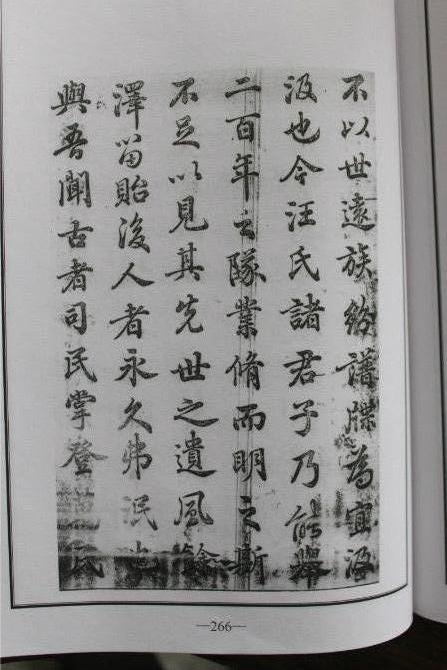 不以世遠族紛譜牒為宜洍
汲也今汪氏諸君子乃能舉
二百年之隊業脩而明之斯
不足以見其先世之遺風餘
澤留貽後人者永久弗泯也
與吾聞古者司民掌登萬民
—266—